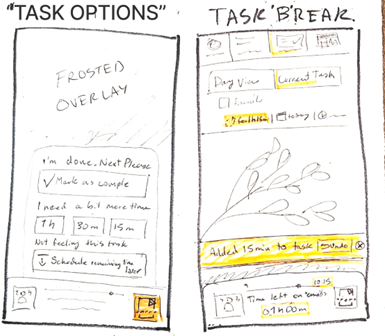 "TASK OPTIONS"
FROSTED
OVERLAY
I'm done. Next Please
✓ Mark as comple
I need a bit more time
1h
30m
15m
Not feeling this task
Schedule remaining time
later
TASK "BREAK
Day View
Current Task
Lunch
today
Added 15min to task
Undo
Time left on emails
01h00m